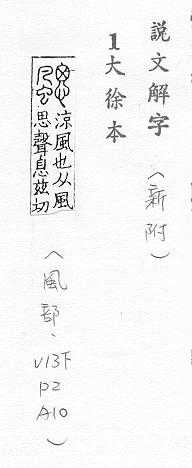 說文解字（新附）
1大徐本
涼風也从風
思聲息茲切
（風部、V13下
P2
A10）